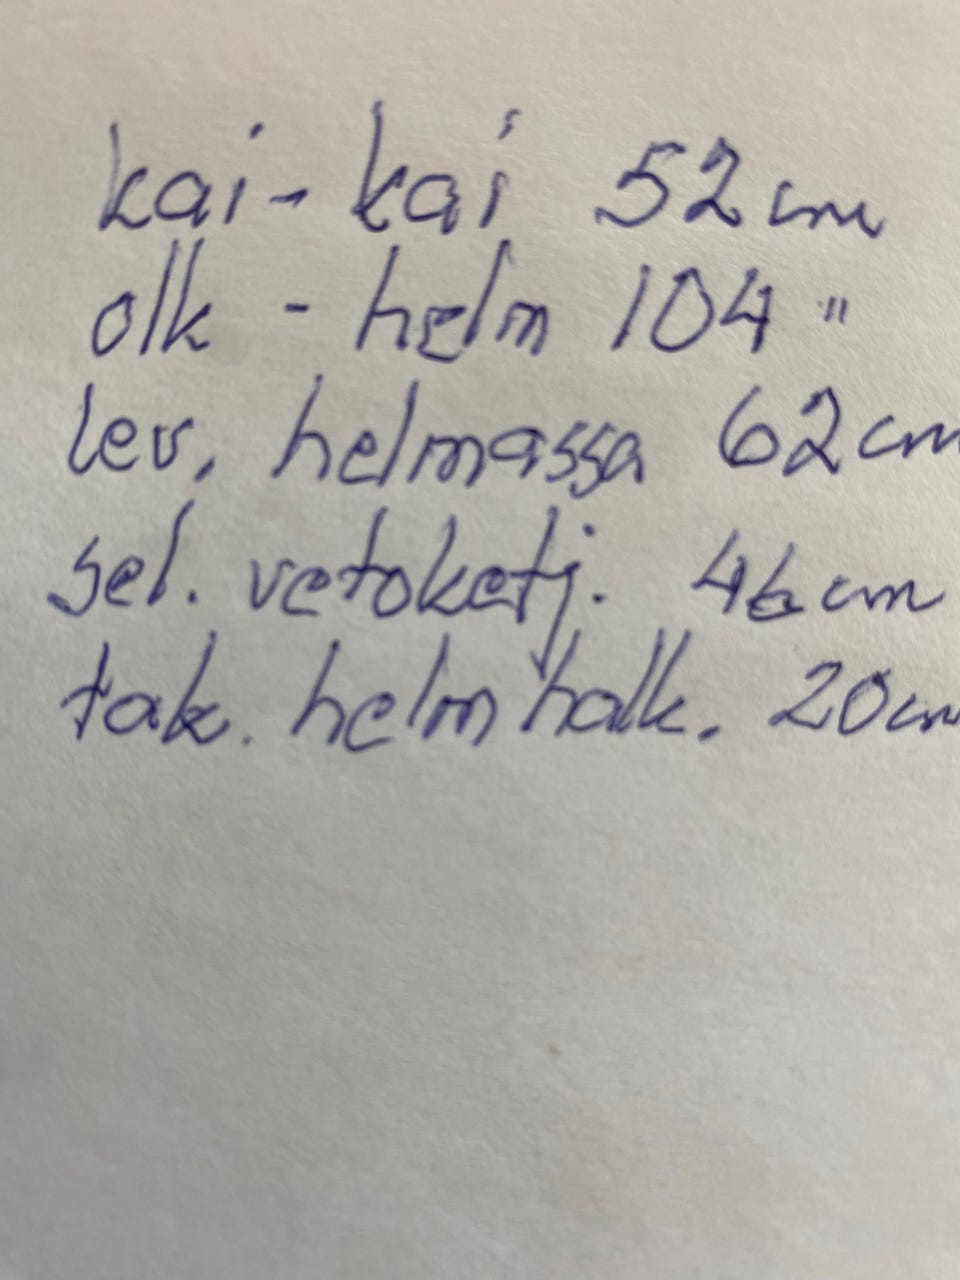 kai - kai 52 cm
olk - helm 104 "
lev. helmassa 62 cm
sel. vetoketj. 46 cm
tak. helm halk. 20 cm